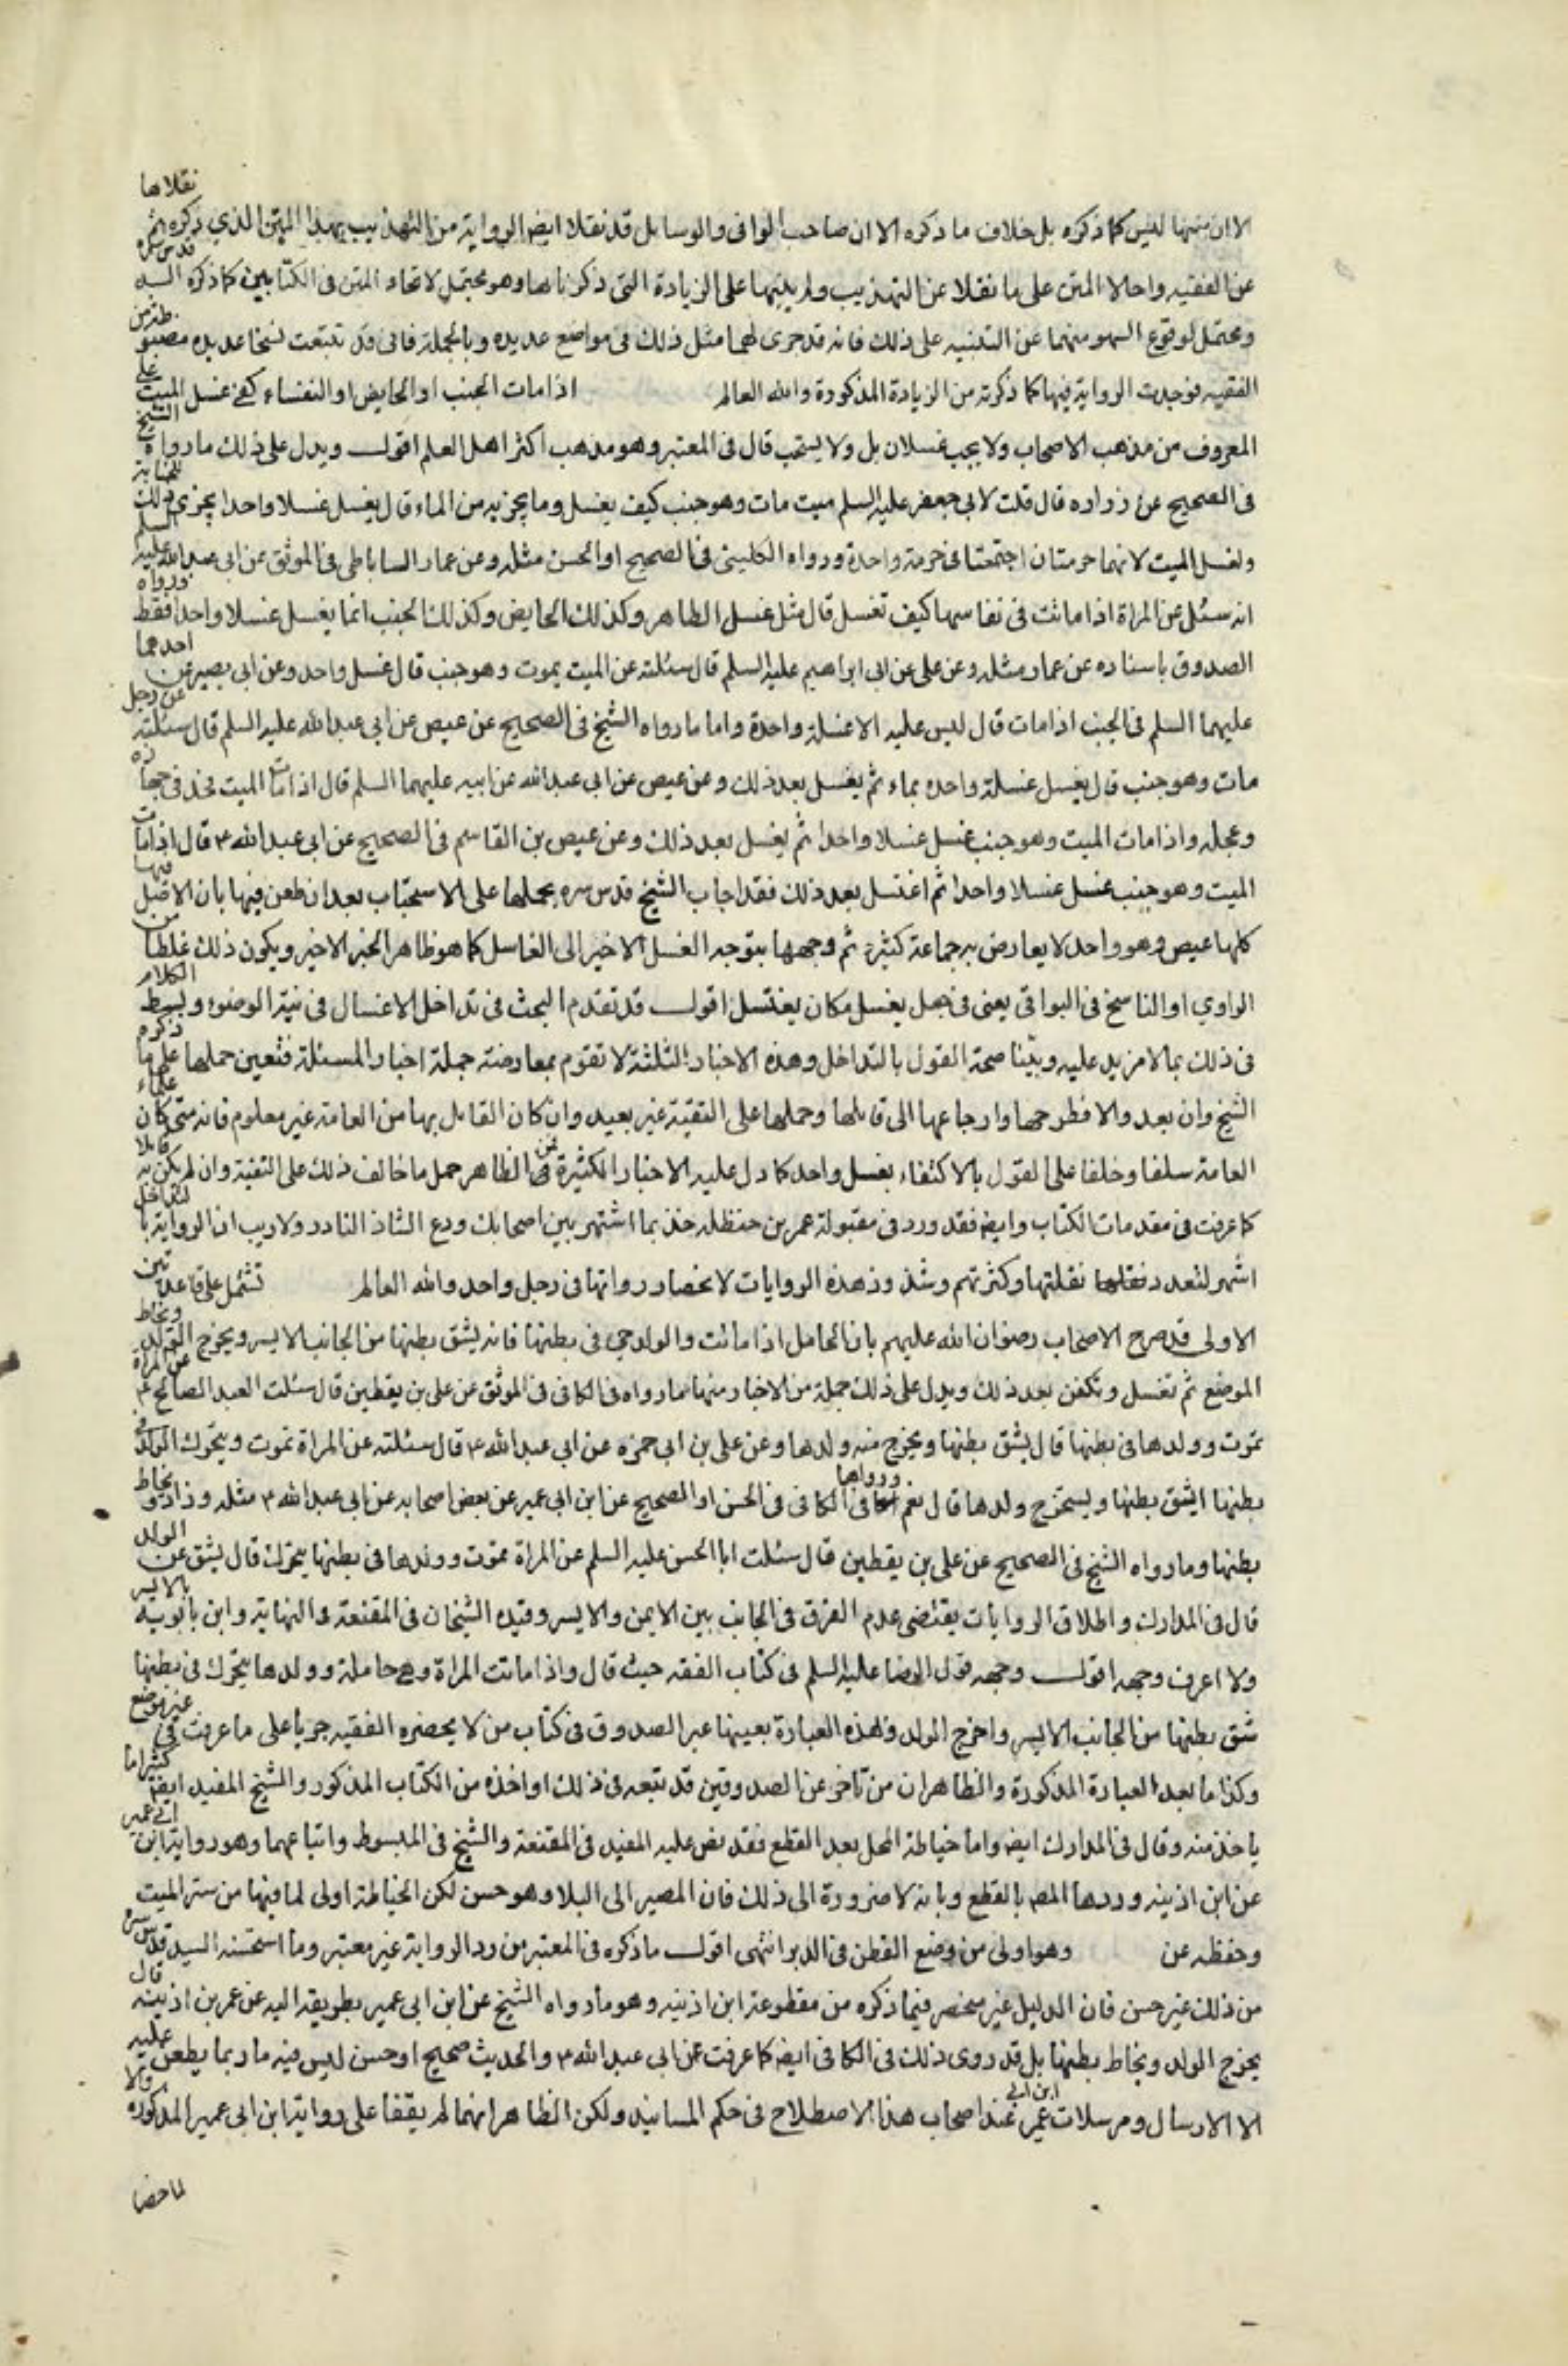 الا ان متنها ليس كما ذكره بل خلاف ما ذكره الا ان صاحب الوافي والوسايل قد نقلا ايضا الرواية من التهذيب بهذا المتن الذي ذكره ثم نقلاها
عن الفقيه واحالا المتن على ما نقلا عن التهذيب ولم ينبها على الزيادة التي ذكرناها وهو محتمل لاتحاد المتن في الكتابين كما ذكره السيد قدس سره
ومحتمل لوقوع السهو منهما عن التنبيه على ذلك فانه قد جرى لهما مثل ذلك في مواضع عديده وبالجملة فاني قد تتبعت نسخا عديده مضبوطة من
الفقيه فوجدت الرواية فيها كما ذكرته من الزيادة المذكورة والله العالم اذا مات الجنب او الحايض او النفساء كفى غسل الميت على
المعروف من مذهب الاصحاب ولا يجب غسلان بل ولا يستحب قال في المعتبر وهو مذهب اكثر اهل العلم اقول ويدل على ذلك ما رواه الشيخ
في الصحيح عن زراره قال قلت لابي جعفر عليه السلم ميت مات وهو جنب كيف يغسل وما يجزيه من الماء قال يغسل غسلا واحدا يجزي ذلك للجنابة
ولغسل الميت لانهما حرمتان اجتمعتا في حرمة واحدة ورواه الكليني في الصحيح او الحسن مثله وعن عمار الساباطي في الموثق عن ابي عبد الله عليه السلم
انه سئل عن المراة اذا ماتت في نفاسها كيف تغسل قال مثل غسل الطاهر وكذلك الحايض وكذلك الجنب انما يغسل غسلا واحدا فقط ورواه
الصدوق باسناده عن عمار مثله وعن علي عن ابي ابراهيم عليه السلم قال سئلته عن الميت يموت وهو جنب قال غسل واحد وعن ابي بصير عن احدهما
عليهما السلم في الجنب اذا مات قال ليس عليه الا غسلة واحدة واما ما رواه الشيخ في الصحيح عن عيص عن ابي عبد الله عليه السلم قال سئلته عن رجل
مات وهو جنب قال يغسل غسلة واحده بماء ثم يغسل بعد ذلك وعن عيص عن ابي عبد الله عن ابيه عليهما السلم قال اذا مات الميت فخذ في جهازه
وعجله واذا مات الميت وهو جنب غسل غسلا واحدا ثم يغسل بعد ذلك وعن عيص بن القاسم في الصحيح عن ابي عبد الله ع قال اذا مات
الميت وهو جنب غسل غسلا واحدا ثم اغتسل بعد ذلك فقد اجاب الشيخ قدس سره بحملها على الاستحباب بعد ان طعن فيها بان الاصل فيها
كلها عيص وهو واحد لا يعارض به جماعة كثيرة ثم وجهها بتوجه الغسل الاخير الى الغاسل كما هو ظاهر الخبر الاخير ويكون ذلك غلطا من
الراوي او الناسخ في البواقي يعني في جعل يغسل مكان يغتسل اقول قد تقدم البحث في تداخل الاغسال في نية الوضوء وبسط الكلام
في ذلك بما لا مزيد عليه وبينا صحة القول بالتداخل وهذه الاخبار الثلثة لا تقوم بمعارضة جملة اخبار المسئلة فتعين حملها على ما ذكره
الشيخ وان بعد والا فطرحها وارجاعها الى قايلها وحملها على التقية غير بعيد وان كان القايل بها من العامة غير معلوم فانه متى كان علماء
العامة سلفا وخلفا على القول بالاكتفاء بغسل واحد كما دل عليه الاخبار الكثيرة فمن الظاهر حمل ما خالف ذلك على التقية وان لم يكن به قايلا
كما عرفت في مقدمات الكتاب وايضا فقد ورد في مقبولة عمر بن حنظله خذ بما اشتهر بين اصحابك ودع الشاذ النادر ولا ريب ان الرواية بالتداخل
اشهر لتعدد نقلتها وكثرتهم وشذوذ هذه الروايات لانحصار رواتها في رجل واحد والله العالم تشتمل على قاعدتين
الاولى قد صرح الاصحاب رضوان الله عليهم بان الحامل اذا ماتت والولد حي في بطنها فانه يشق بطنها من الجانب الايسر ويخرج الولد ويخاط
الموضع ثم تغسل وتكفن بعد ذلك ويدل على ذلك جملة من الاخبار منها ما رواه في الكافي في الموثق عن علي بن يقطين قال سئلت العبد الصالح ع عن المراة
تموت وولدها في بطنها قال يشق بطنها ويخرج منه ولدها وعن علي بن ابي حمزه عن ابي عبد الله ع قال سئلته عن المراة تموت ويتحرك الولد في
بطنها ايشق بطنها ويستخرج ولدها قال نعم ورواها في الكافي في الحسن او الصحيح عن ابن ابي عمير عن بعض اصحابه عن ابي عبد الله ع مثله وزاد ويخاط
بطنها وما رواه الشيخ في الصحيح عن علي بن يقطين قال سئلت ابا الحسن عليه السلم عن المراة تموت وولدها في بطنها يتحرك قال يشق عن الولد
قال في المدارك واطلاق الروايات يقتضي عدم الفرق في الجانب بين الايمن والايسر وقيده الشيخان في المقنعة والنهاية وابن بابويه بالايسر
ولا اعرف وجهه اقول وجهه قول الرضا عليه السلم في كتاب الفقه حيث قال واذا ماتت المراة وهي حاملة وولدها يتحرك في بطنها
شق بطنها من الجانب الايسر واخرج الولد وبهذه العبارة بعينها عبر الصدوق في كتاب من لا يحضره الفقيه جريا على ما عرفت في غير موضع
وكذا ما بعد العبارة المذكورة والظاهر ان من تاخر عن الصدوقين قد تبعه في ذلك او اخذه من الكتاب المذكور والشيخ المفيد ايضا كثيرا ما
ياخذ منه وقال في المدارك ايضا واما خياطة المحل بعد القطع فقد نص عليه المفيد في المقنعة والشيخ في المبسوط واتباعهما وهو رواية ابن ابي عمير
عن ابن اذينه وردها المصـ بالقطع وبانه لا ضرورة الى ذلك فان المصير الى البلا وهو حسن لكن الخياطة اولى لما فيها من ستر الميت
وحفظه عن وهو اولى من وضع القطن في الدبر انتهى اقول ما ذكره في المعتبر من رد الرواية غير معتبر وما استحسنه السيد قدس سره
من ذلك غير حسن فان الدليل غير منحصر فيما ذكره من مقطوعة ابن اذينه وهو ما رواه الشيخ عن ابن ابي عمير بطريقه اليه عن عمر بن اذينه قال
يخرج الولد ويخاط بطنها بل قد روى ذلك في الكافي ايضا كما عرفت عن ابي عبد الله ع والحديث صحيح او حسن ليس فيه ما ربما يطعن عليه
الا الارسال ومرسلات ابن ابي عمير عند اصحاب هذا الاصطلاح في حكم المسانيد ولكن الظاهر انهما لم يقفا على رواية ابن ابي عمير المذكوره والا